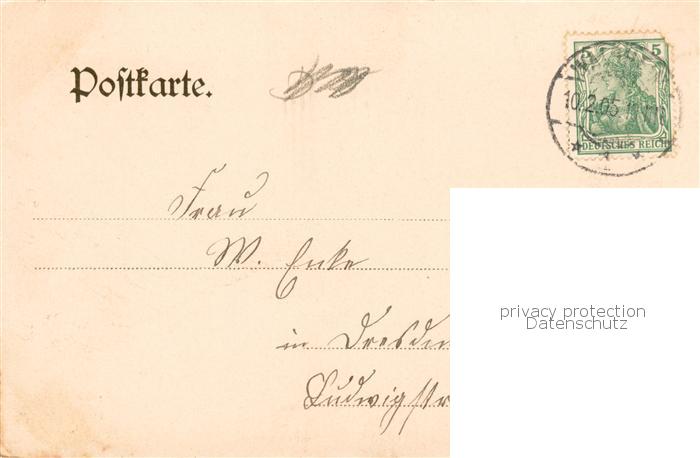 Postkarte.
5
10.2.05
DEUTSCHES REICH
Frau
W. Enke
privacy protection
Datenschutz
in Dresden
Ludwigstr